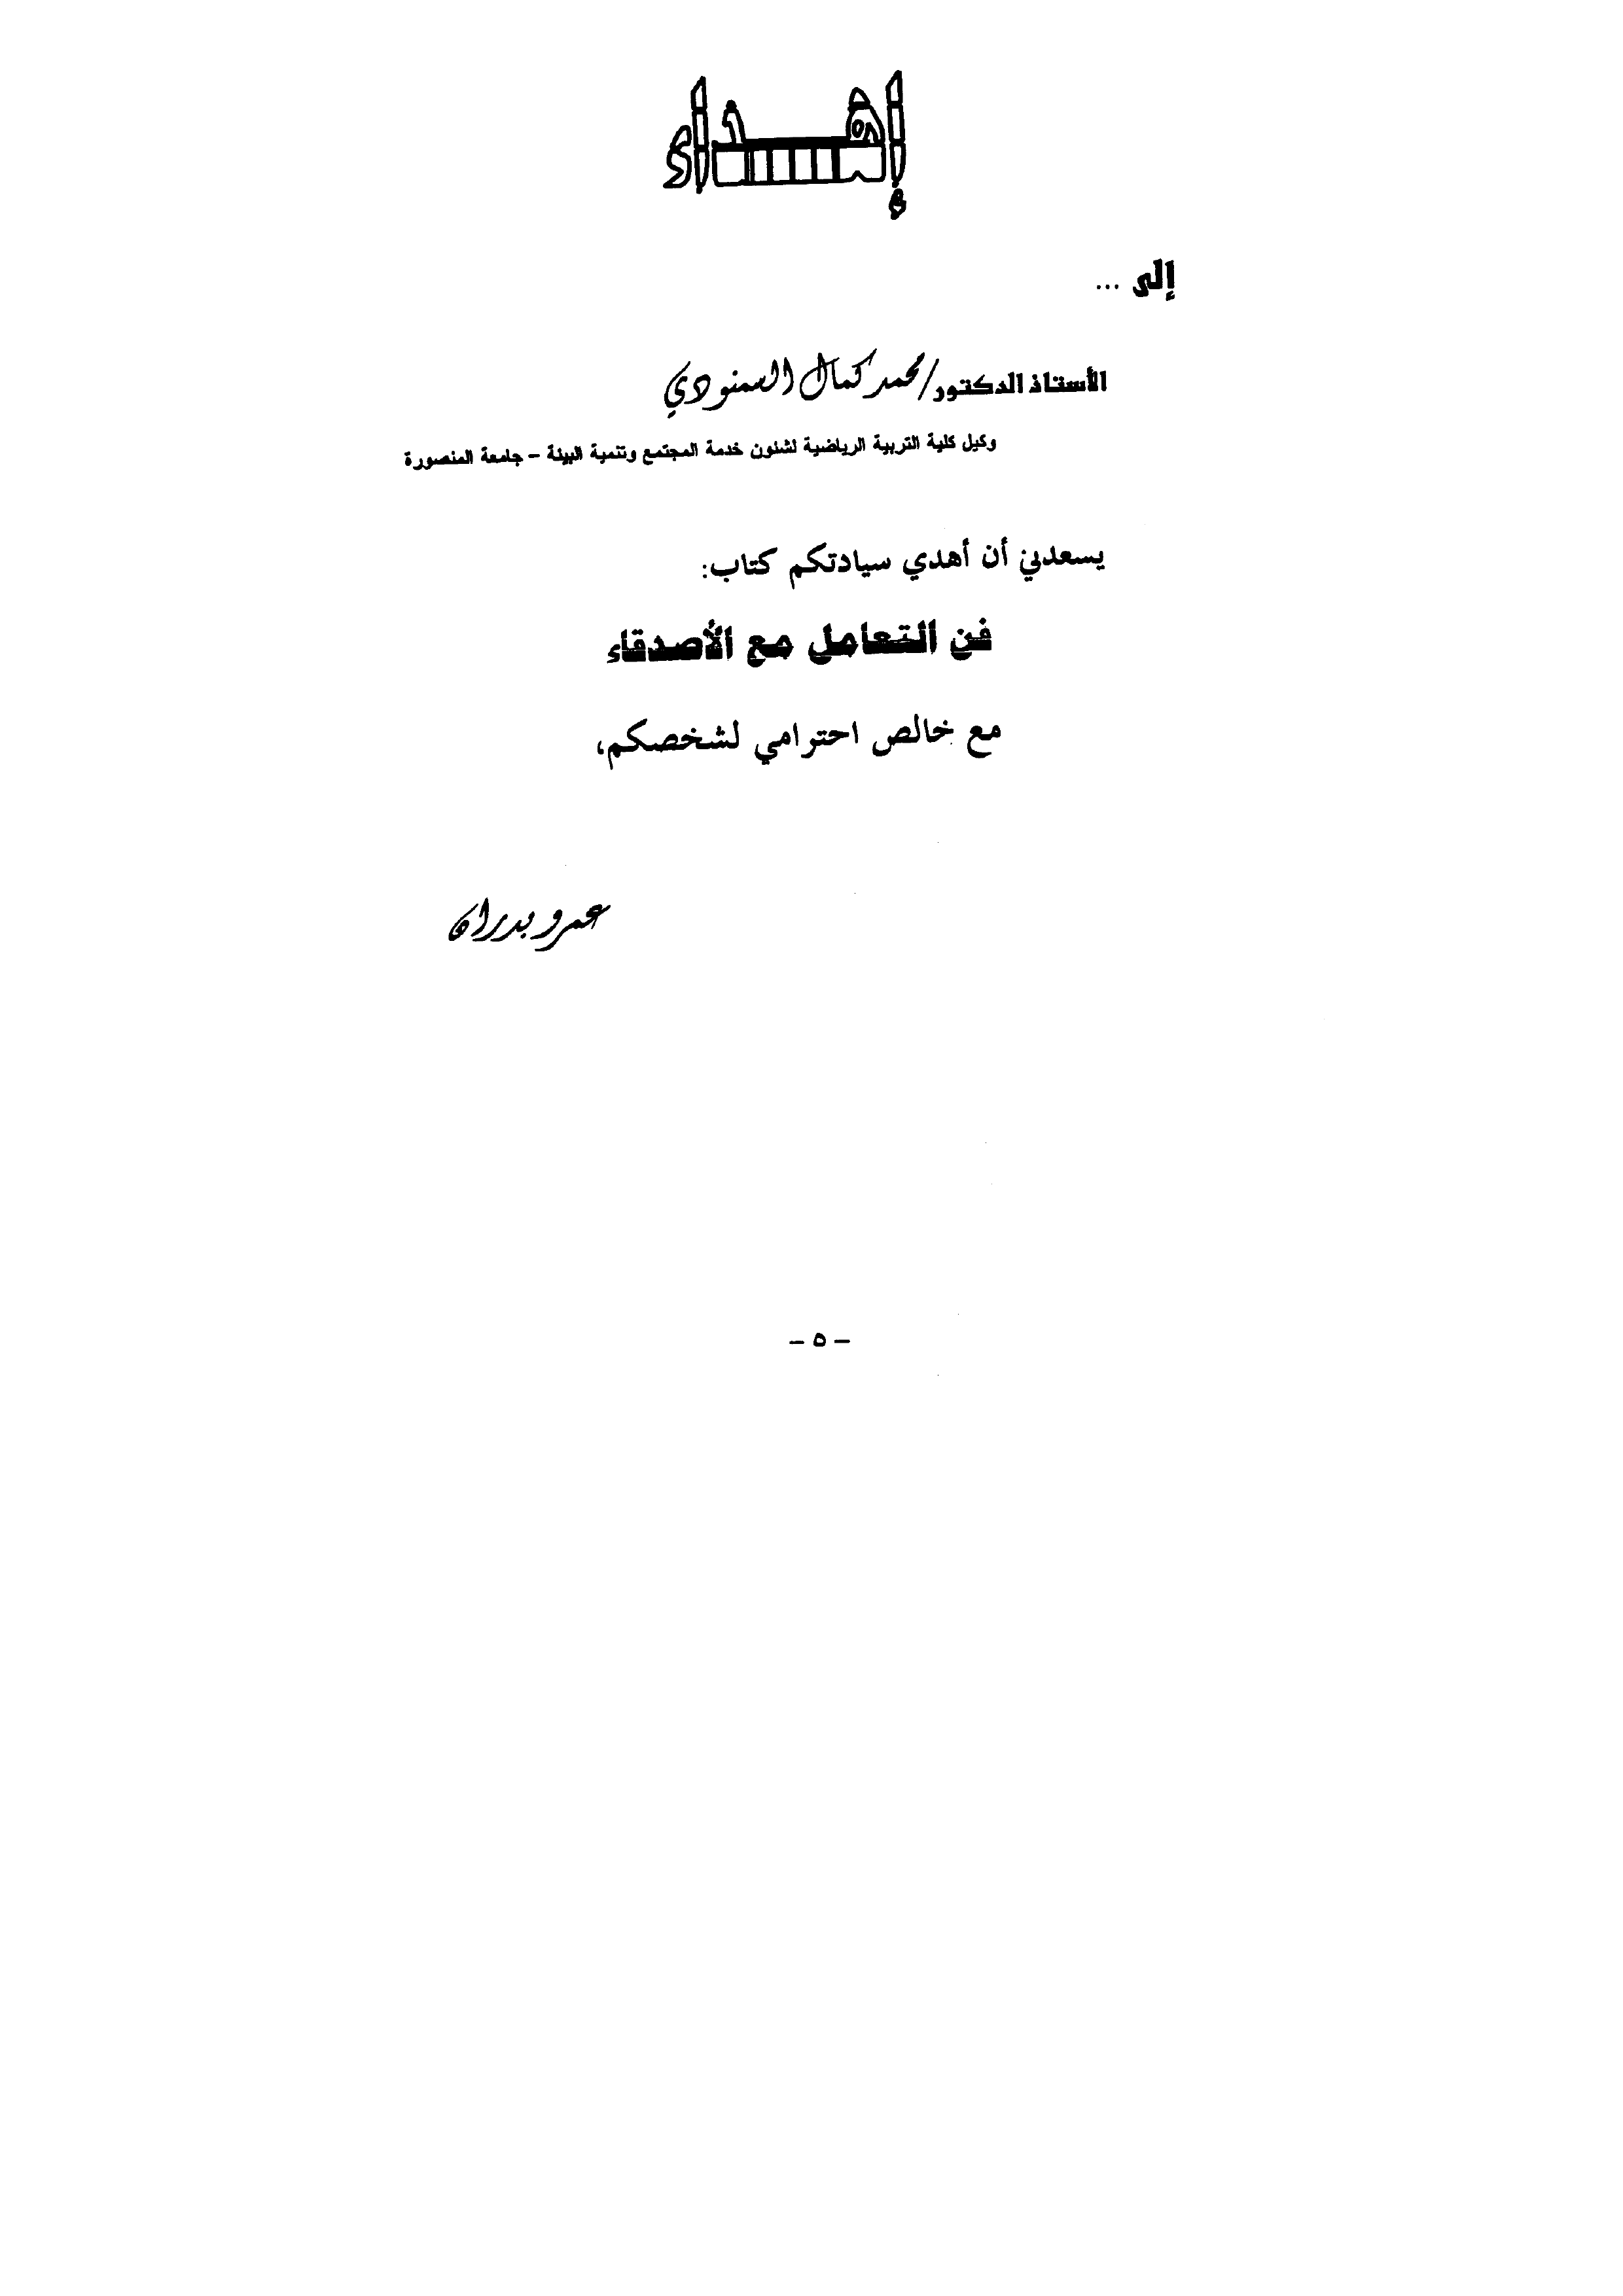 إهــداء
إلى ...
الأستاذ الدكتور/ محمد كمال السمنودي
وكيل كلية التربية الرياضية لشئون خدمة المجتمع وتنمية البيئة – جامعة المنصورة
يسعدني أن أهدي سيادتكم كتاب:
فن التعامل مع الأصدقاء
مع خالص احترامي لشخصكم،
عمرو بدران
– ٥ –